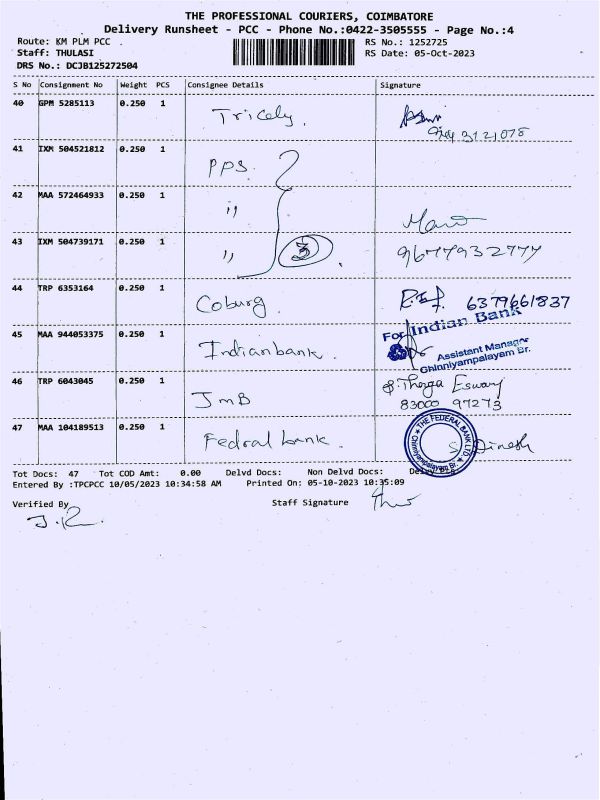 THE PROFESSIONAL COURIERS, COIMBATORE
Delivery Runsheet - PCC - Phone No.:0422-3505555 - Page No.:4
Route: KM PLM PCC . RS No.: 1252725
Staff: THULASI RS Date: 05-Oct-2023
DRS No.: DCJB125272504
S No Consignment No Weight PCS Consignee Details Signature
40 GPM 5285113 0.250 1 Tricely.
41 IXM 504521812 0.250 1 PPS.
42 MAA 572464933 0.250 1 "
43 IXM 504739171 0.250 1 " 3 9677932777
44 TRP 6353164 0.250 1 Coburg. 6379661837
45 MAA 944053375 0.250 1 Indianbank.
For Indian Bank
Assistant Manager
Chinniyampalayam Br.
46 TRP 6043045 0.250 1 JMB Thenga Eswary
83000 97273
47 MAA 104189513 0.250 1 Fedral bank. S. Dinesh
THE FEDERAL BANK LTD.
Chinniyampalayam Br.
Tot Docs: 47 Tot COD Amt: 0.00 Delvd Docs: Non Delvd Docs:
Entered By :TPCPCC 10/05/2023 10:34:58 AM Printed On: 05-10-2023 10:35:09
Verified By Staff Signature
J.R.